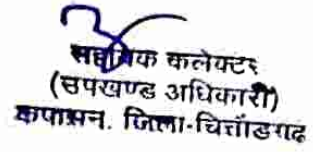 सहायक कलेक्टर
(उपखण्ड अधिकारी)
कपासन, जिला-चित्तौडगढ